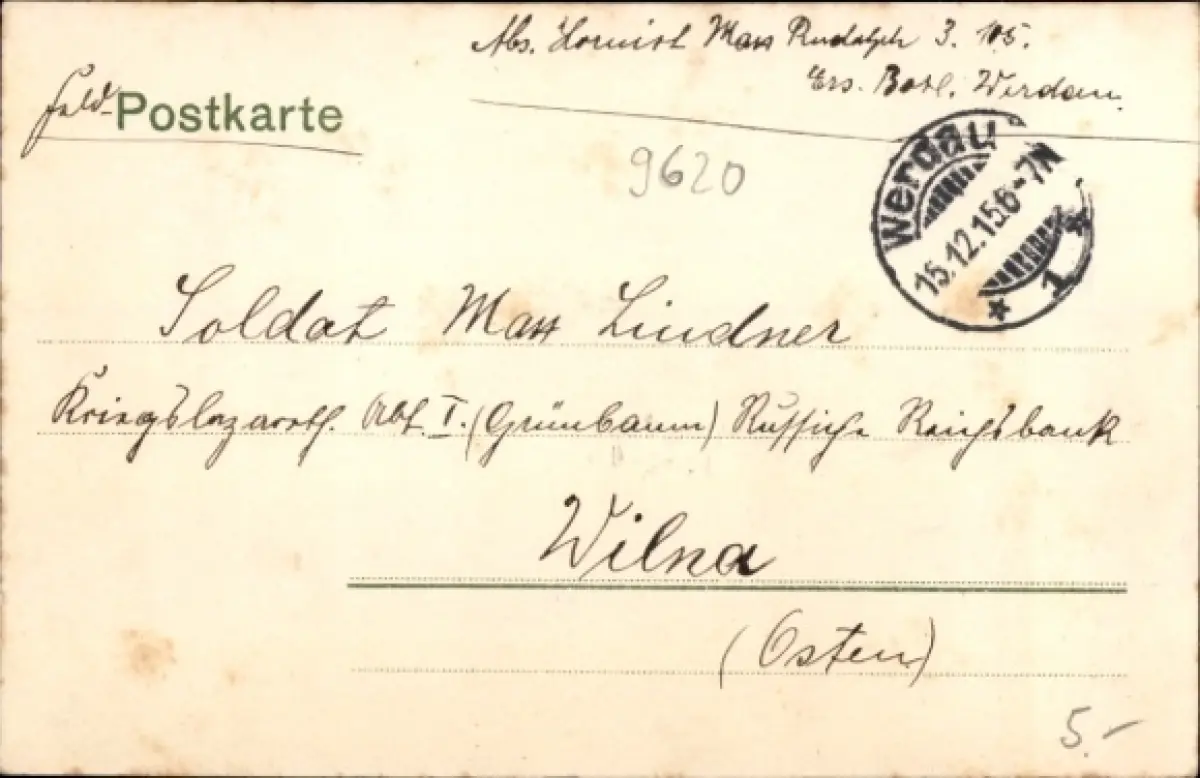 Abs. Hornist Max Rudolph 3. 105.
Ers. Batl. Werdau.
Feld-Postkarte
9620
Werdau
15.12.15 6-7N
* 1 *
Soldat Max Lindner
Kriegslazareth. Abt I. (Grünbaum) Russische Reichsbank
Wilna
(Osten)
5.-